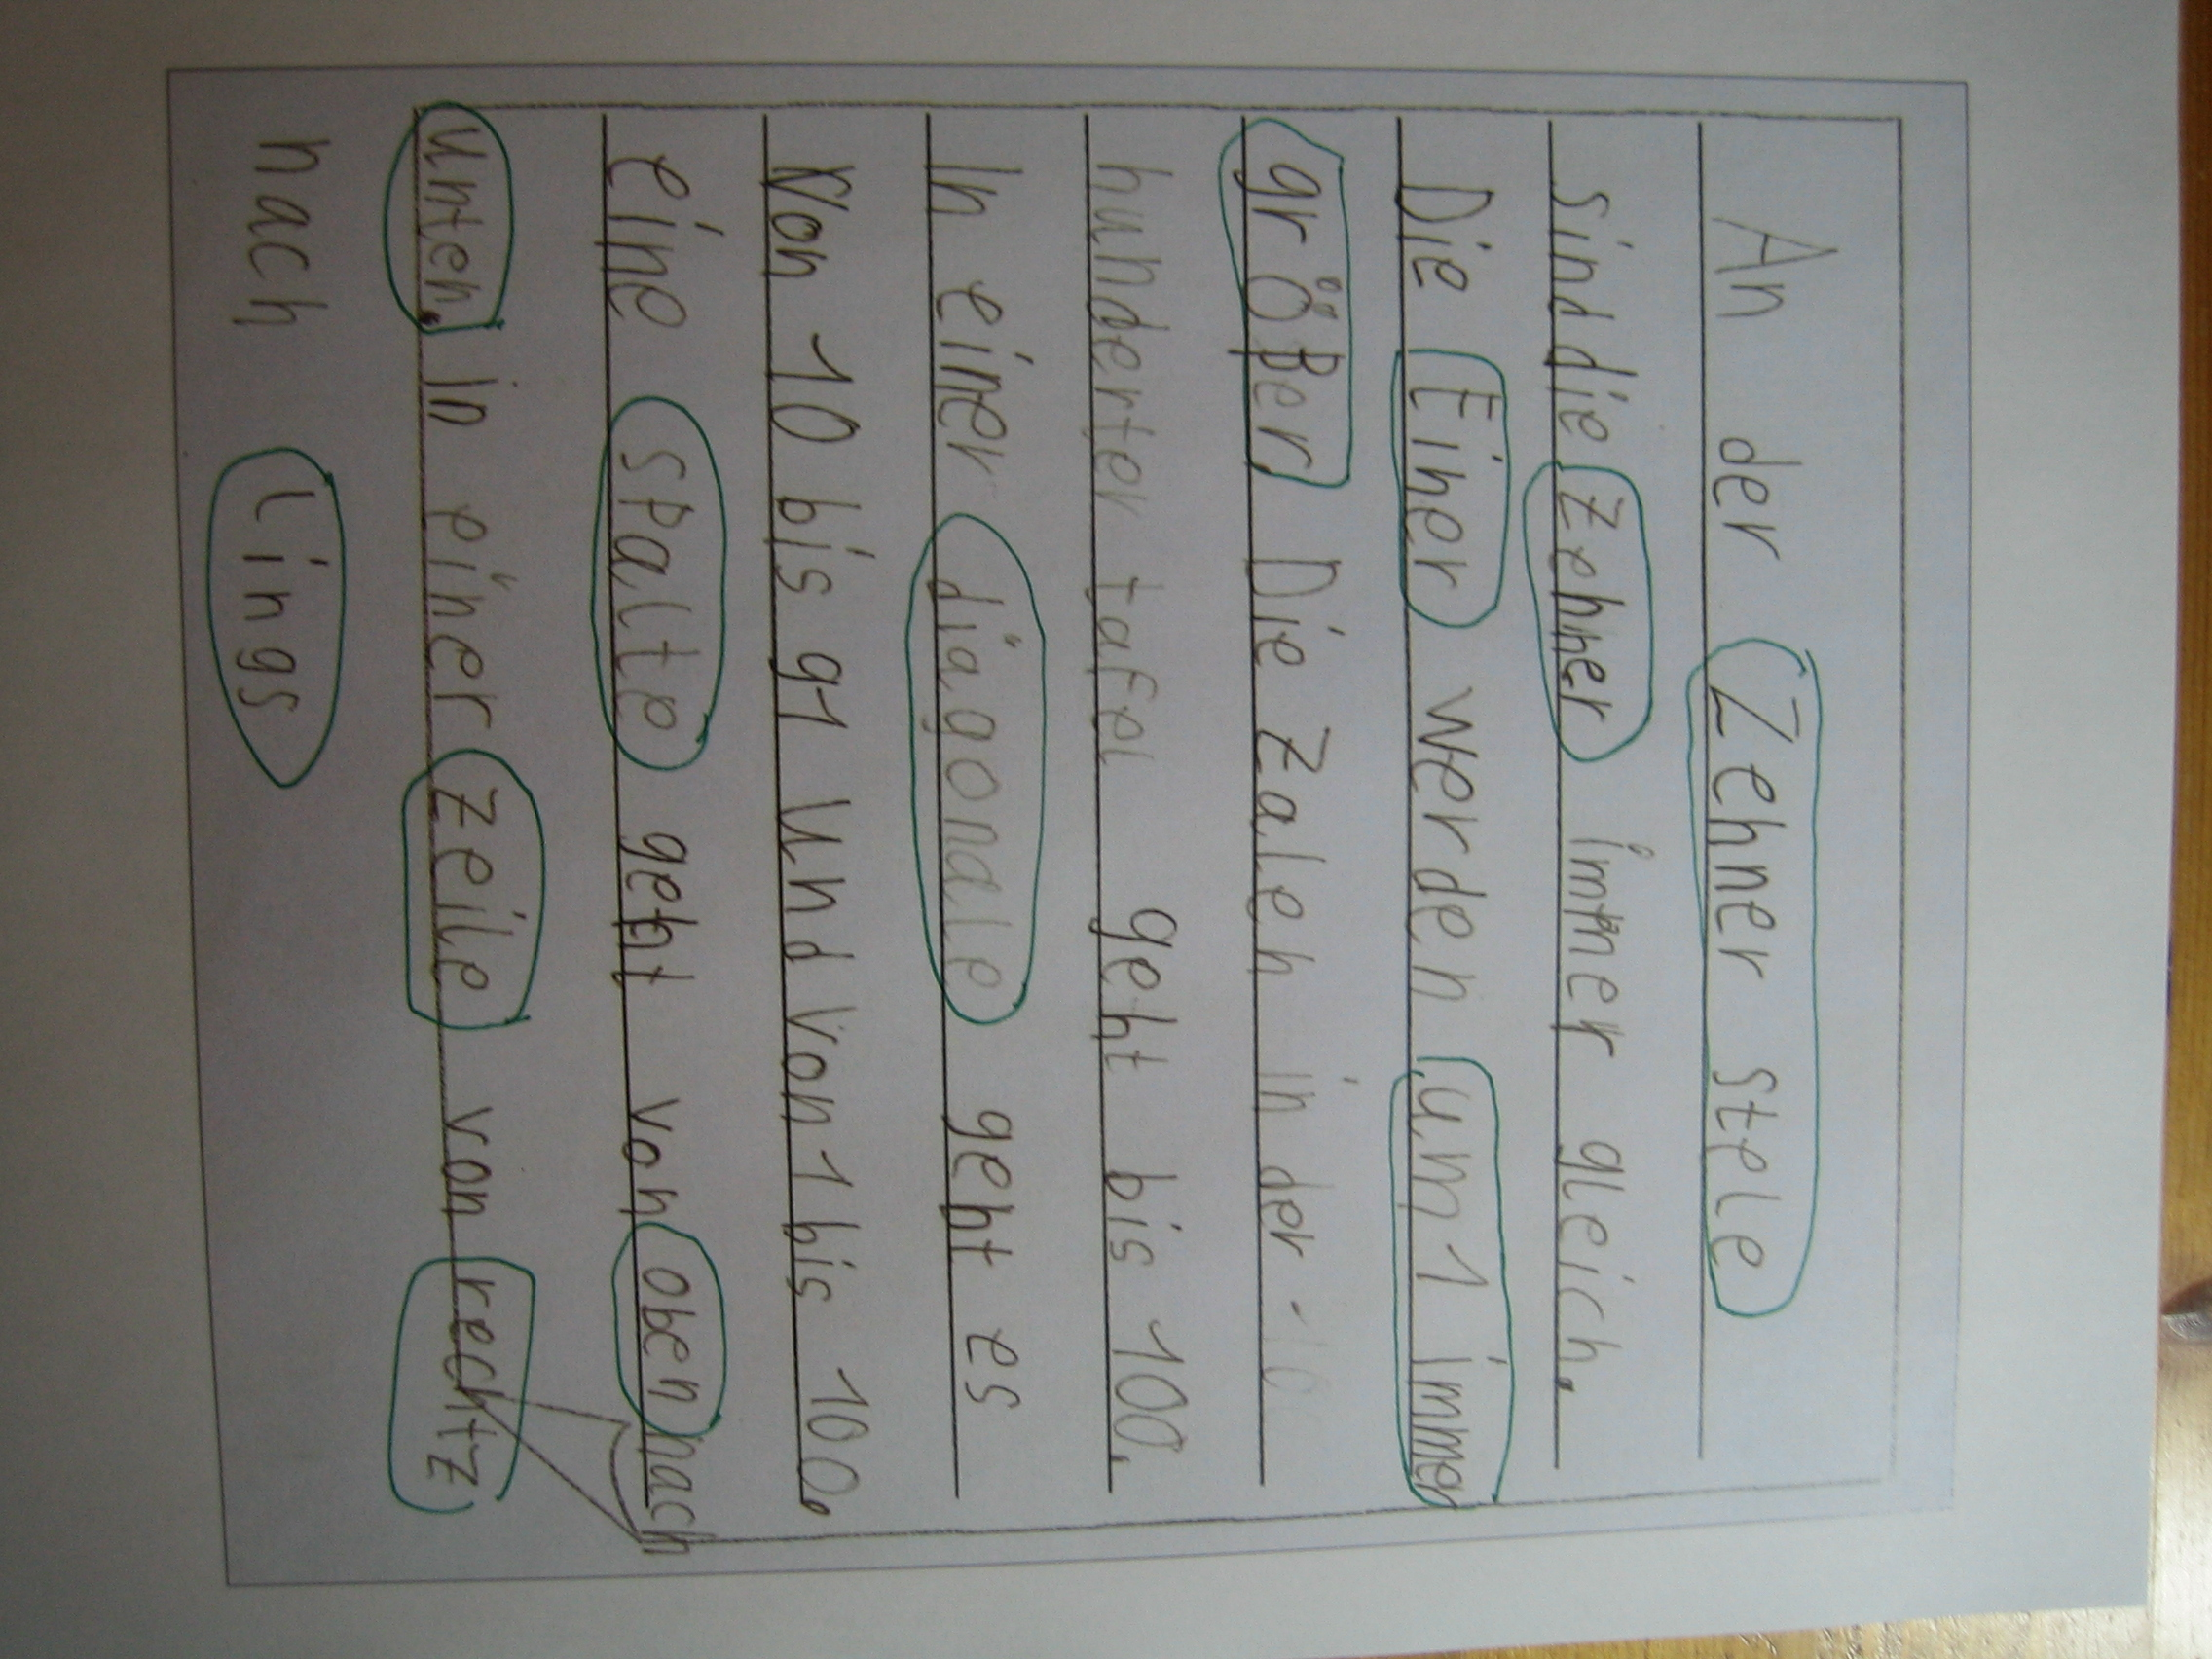 An der Zehner stele
sind die zehner immer gleich.
Die Einer werden um 1 immer
größer Die zalen in der
hunderter tafel geht bis 100.
In einer diagonale geht es
Von 10 bis 91 und von 1 bis 100.
eine spalte geht von oben nach
unten. in einer zeile von rechtz
nach lings